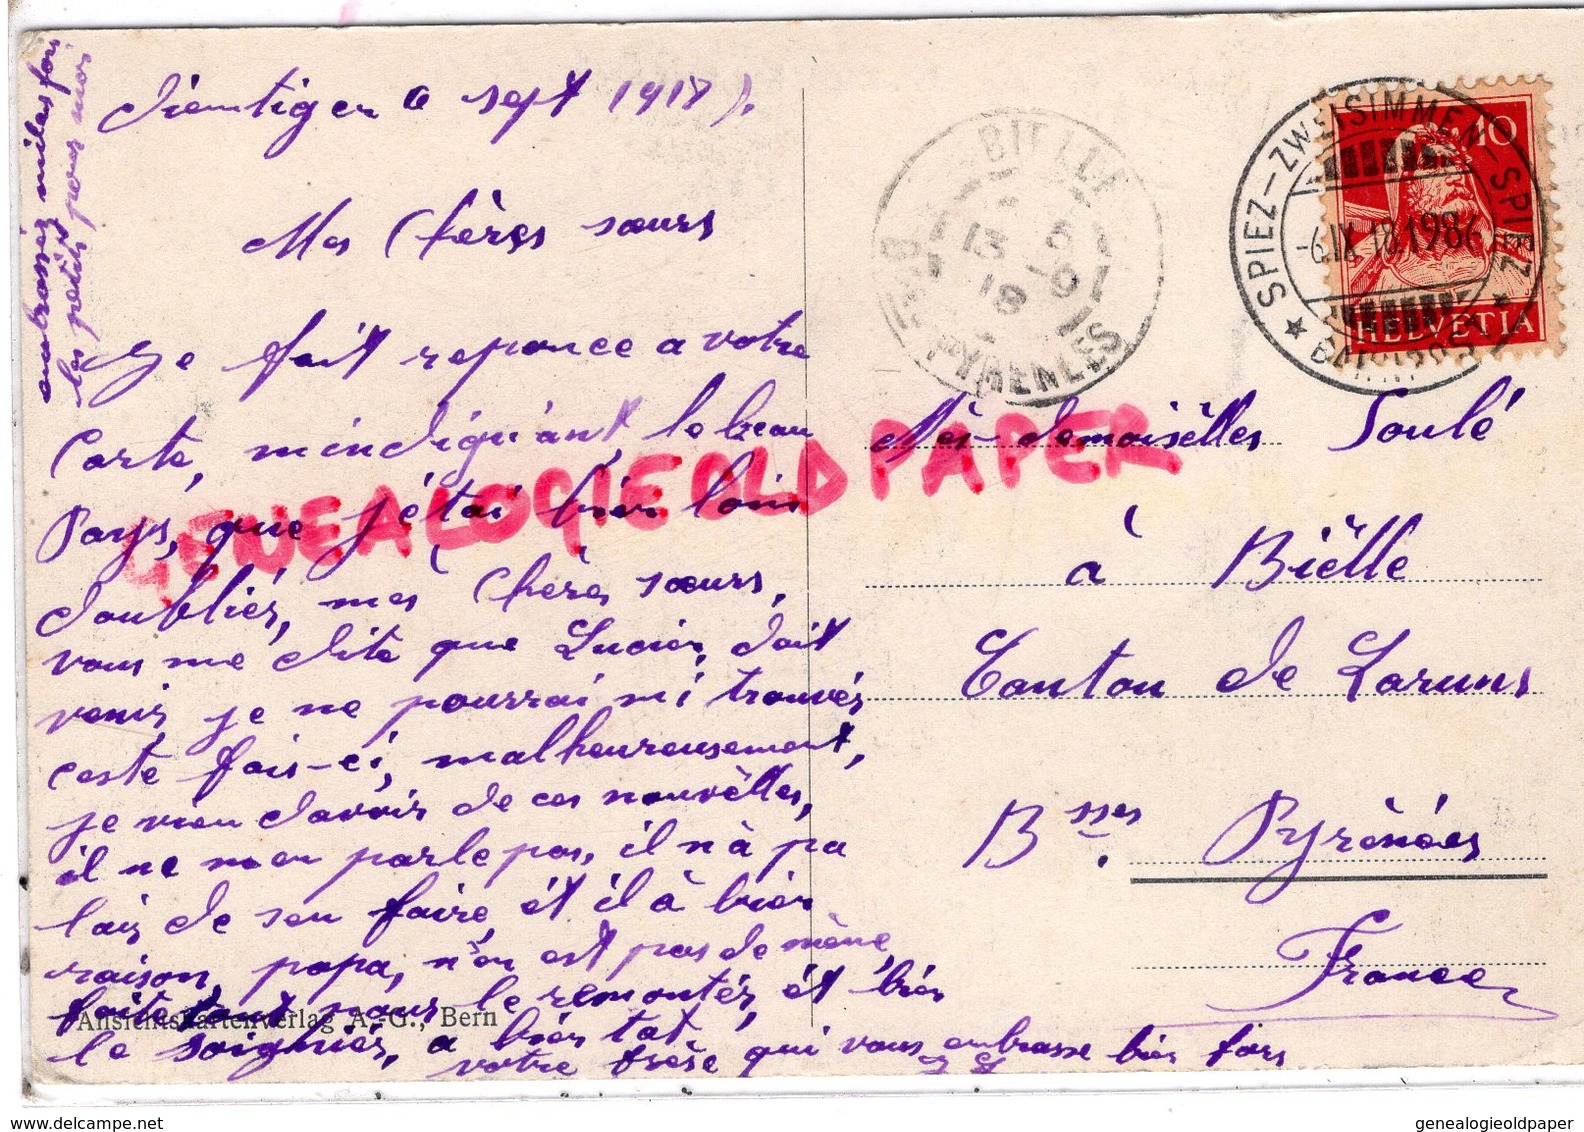 embrassés milesfois
les petits pour moi
Diemtigen 6 sept 1918).
Mes Chères sœurs
Je fait reponce a votre
Carte, m'indiquànt, le beau
Pays, que j'étai bien loin
d'oubliér, mes Chères sœurs,
vous me dite que Lucien, doit
venir je ne pourrai mi trouvér
ceste fois-ci, malheureusement,
je vien d'avoir de ces nouvèlles,
il ne m'en parle pas, il n'à pa
lais de s'en faire, ét il à bien
raison, papa, n'en est pas de mème,
faite tout pour le remontér, ét bien
le soigniér, a bien tot
votre frère qui vous embrasse bien fors
Ansichtskartenverlag A.-G., Bern
GENEALOGIE OLD PAPER
BIELLE
13 5
18 9
PYRENEES
SPIEZ-ZWEISIMMEN-SPIEZ
-6.IX.18.1986
10
HELVETIA
Mès-demoisèlles Soulé
à Bièlle
Canton de Laruns
Bsses. Pyrènées
France
genealogieoldpaper
www.delcampe.net